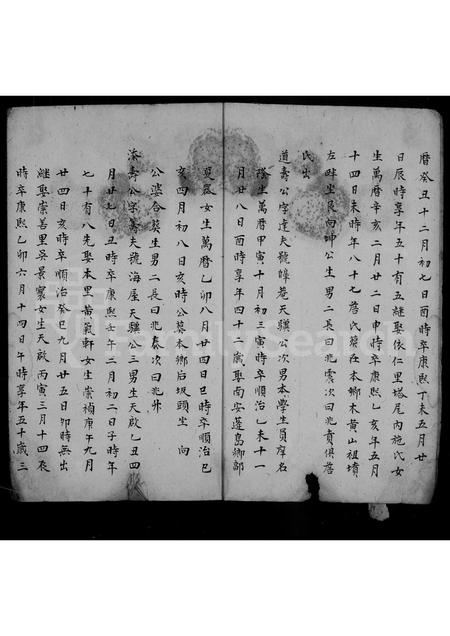 曆癸丑十二月初七日酉時卒康熙丁未五月廿
日辰時享年五十有五繼娶依仁里塔尾內施氏女
生萬曆辛亥二月廿二日申時卒康熙乙亥年五月
十四日未時年八十七詹氏葬在本鄉木黃山祖墳
左畔坐艮向坤公生男二長曰兆震次曰兆賁俱詹
氏出
道壽公字達夫號 菴天驥公次男本學生員 名
 生萬曆甲寅十月初三寅時卒順治乙未十一
月廿八日酉時享年四十二歲娶南安蓬島鄉郭
 女生萬曆乙卯八月廿四日巳時卒順治己
亥四月初八日亥時公葬本鄉后圾頭坐 向
公婆合葬生男二長曰兆泰次曰兆升
添壽公字 夫號海屋天驥公三男生天啟乙丑四
月廿七日丑時卒康熙壬午二月初二日子時年
七十有八先娶本里黃氣軒女生崇禎庚午九月
廿四日亥時卒順治癸巳九月廿五日卯時無出
繼娶崇善里吳景寰女生天啟丙寅三月十四 
時卒康熙乙卯六月十四日午時享年五十歲三
FamilySearch